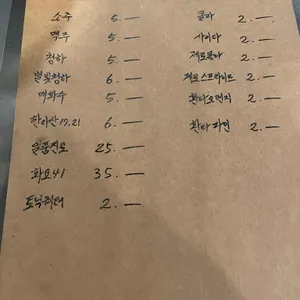 소주 5.—
맥주 5.—
청하 5.—
별빛청하 6.—
매화수 5.—
한라산 17.21 6.—
일품진로 25.—
화요41 35.—
토닉워터 2.—
콜라 2.—
사이다 2.—
제로콜라 2.—
제로스프라이트 2.—
환타오렌지 2.—
환타파인 2.—